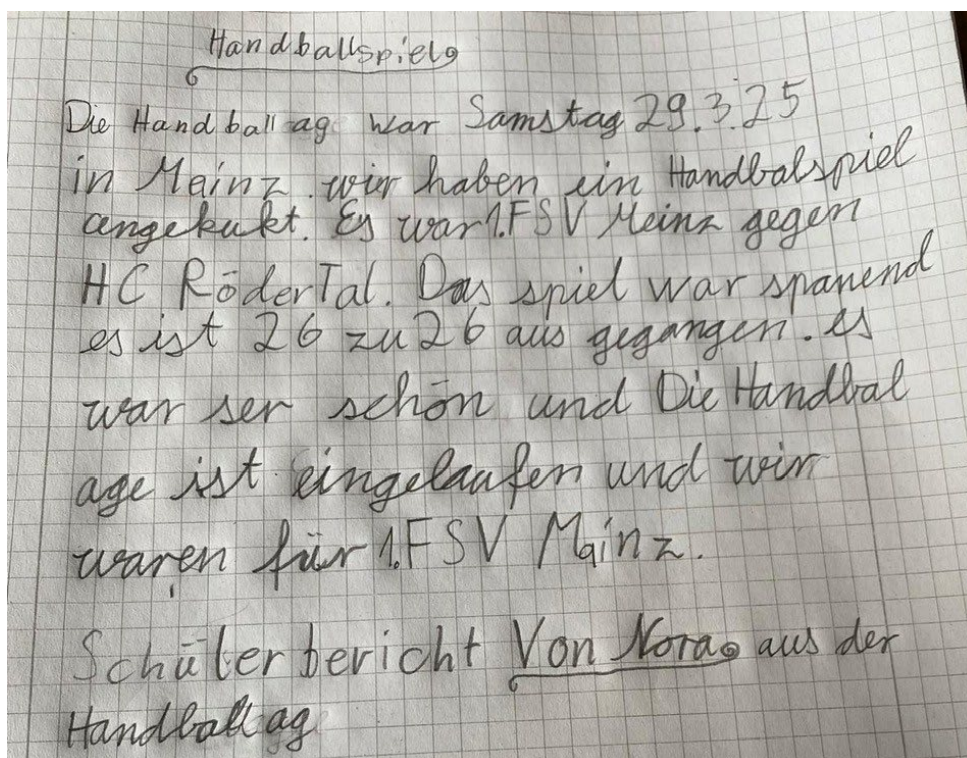 Handballspiel
Die Handball ag war Samstag 29.3.25
in Mainz. wir haben ein Handbalspiel
angekukt. Es war 1.FSV Meinz gegen
HC RöderTal. Das spiel war spanend
es ist 26 zu 26 aus gegangen. es
war ser schön und Die Handbal
age ist eingelaufen und wir
waren für 1.FSV Mainz.
Schüler bericht Von Nora aus der
Handball ag